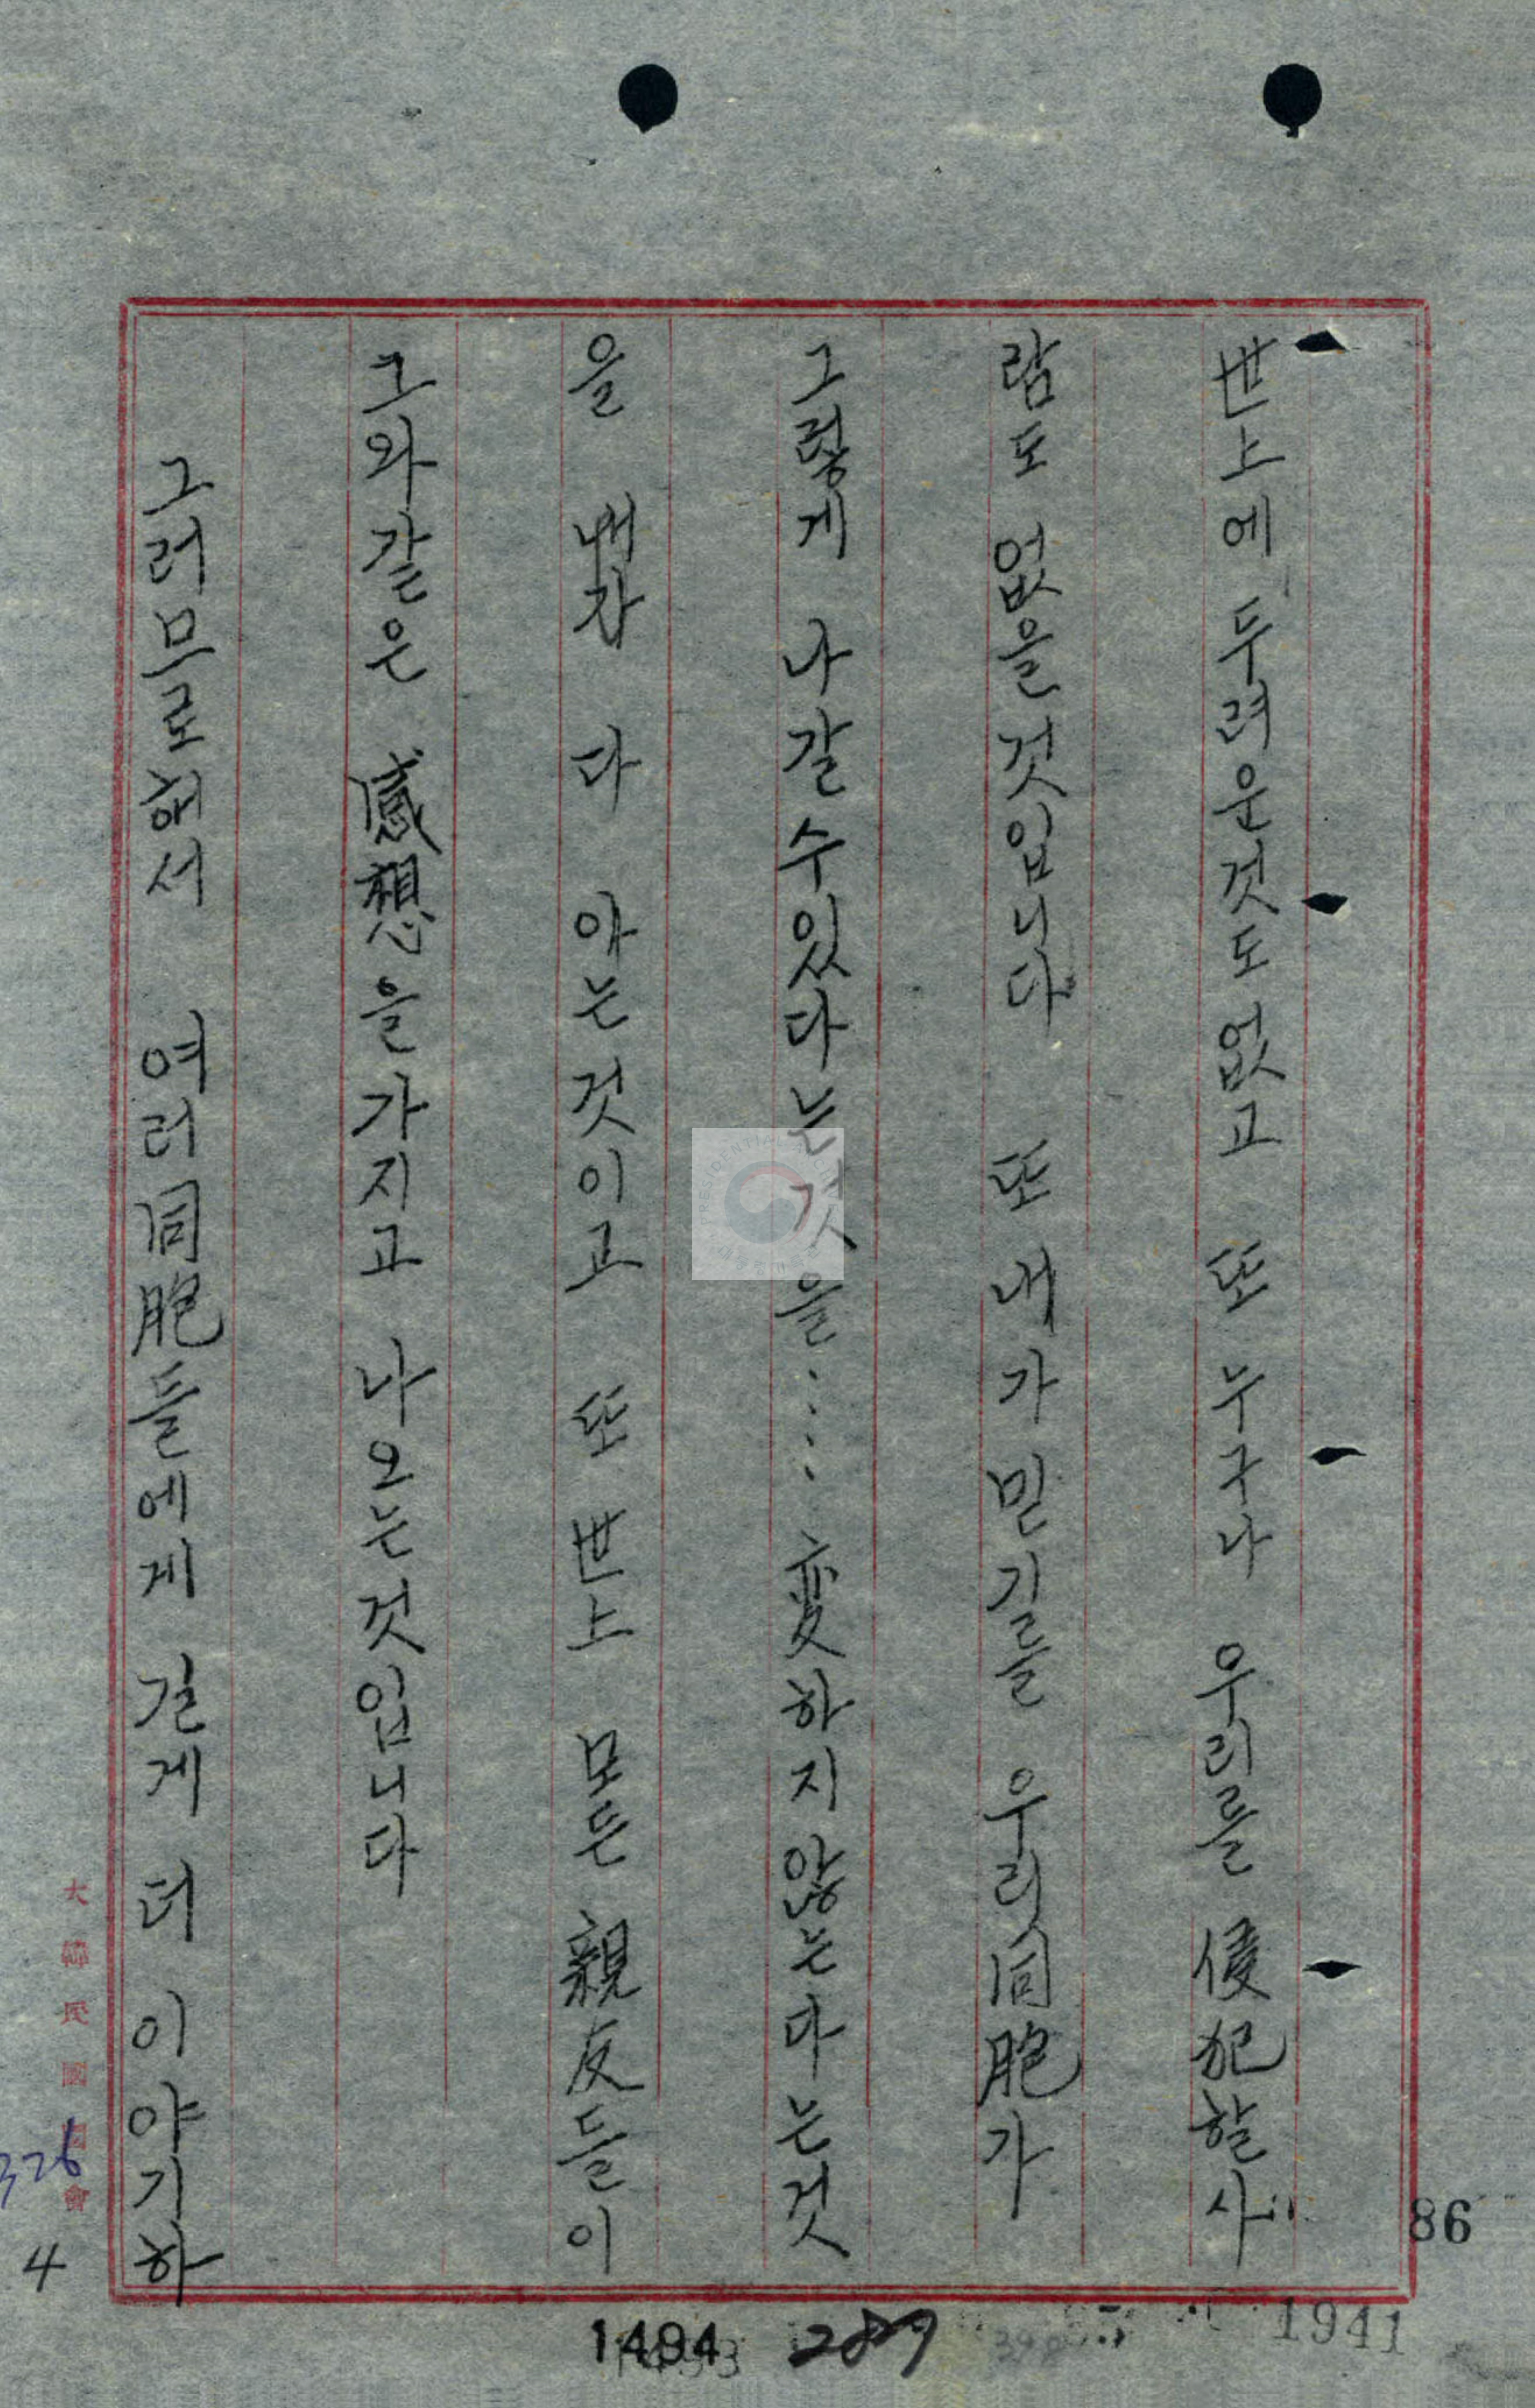 世上에 두려운것도 없고 또 누구나 우리를 侵犯할사
람도 없을것입니다 또 내가 믿기를 우리同胞가
그렇게 나갈수있다는것을……変하지 않는다는것
을 내가 다 아는것이고 또 世上 모든 親友들이
그와같은 感想을가지고 나오는것입니다
그러므로해서 여러同胞들에게 길게 더 이야기하
大韓民國國會
326
4
86
1941
1494
289